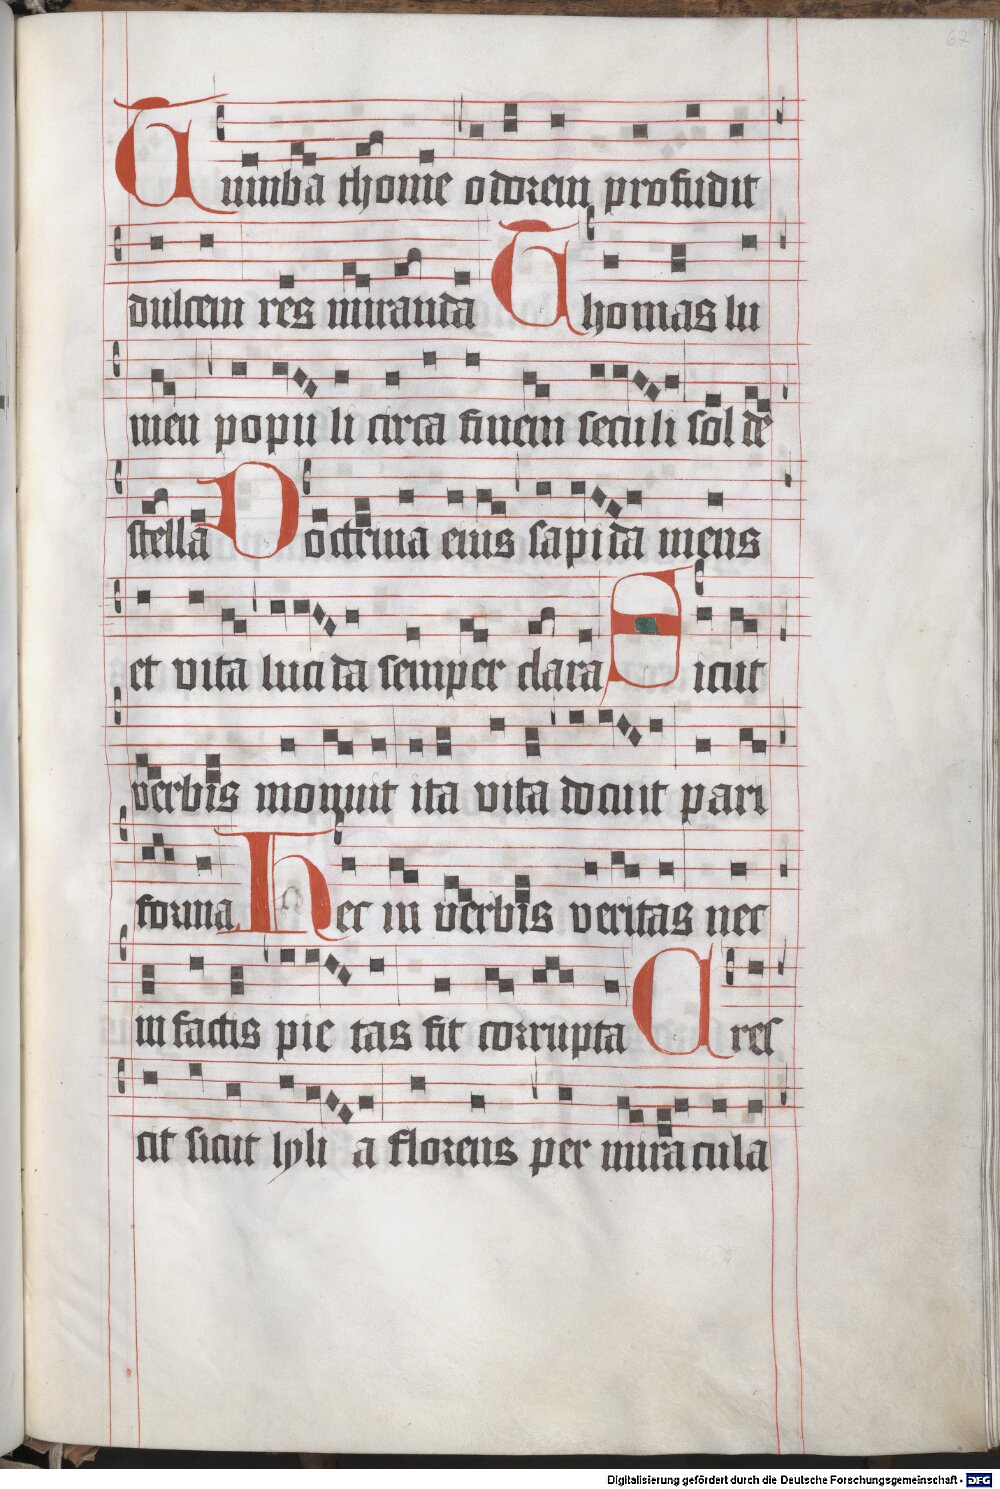 67
Tumba thome odorem profudit
dulcem res miranda Thomas lu
men populi circa finem seculi sol de
stella Doctrina eius sapida mens
et vita lucida semper clara Sicut
verbis monuit ita vita docuit pari
forma Nec in verbis veritas nec
in factis pietas fit corrupta Cres
cit sicut lylia florens per miracula
Digitalisierung gefördert durch die Deutsche Forschungsgemeinschaft - DFG